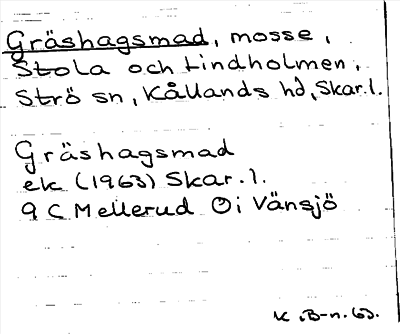 Gräshagsmad, mosse,
Stola och Lindholmen,
Strö sn, Kållands hd, Skar.l.
Gräshagsmad
ek (1963) Skar.l.
9 C Mellerud Öi Vänsjö
K.B-n. 63.